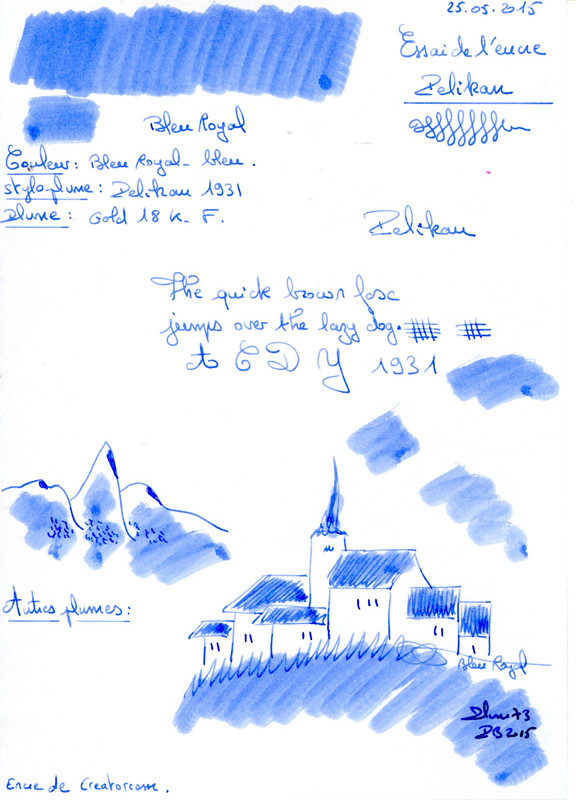 25.05.2015
Essai de l'encre
Pelikan
Bleu Royal
Couleur: Bleu Royal - bleu.
stylo-plume: Pelikan 1931
Plume: Gold 18 K. F.
Pelikan
The quick brown fox
jumps over the lazy dog.
A C D Y 1931
Autres plumes:
Bleu Royal
Plume73
PB 2015
Encre de Creatorcom.